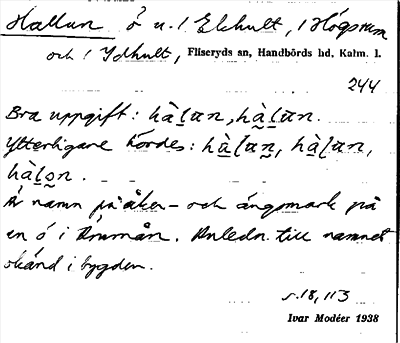 Hallun ö u. / Ekhult, / Högsrum
och / Idhult, Fliseryds sn, Handbörds hd, Kalm. l.
244
Bra uppgift: hàḷɑn, hàḷɑn.
Ytterligare hördes: hàḷɑn, hàḷɑn,
hàḷon.
Är namn på åker- och ängsmark på
en ö i Emmån. Anledn. till namnet
okänd i bygden.
s. 18, 113
Ivar Modéer 1938